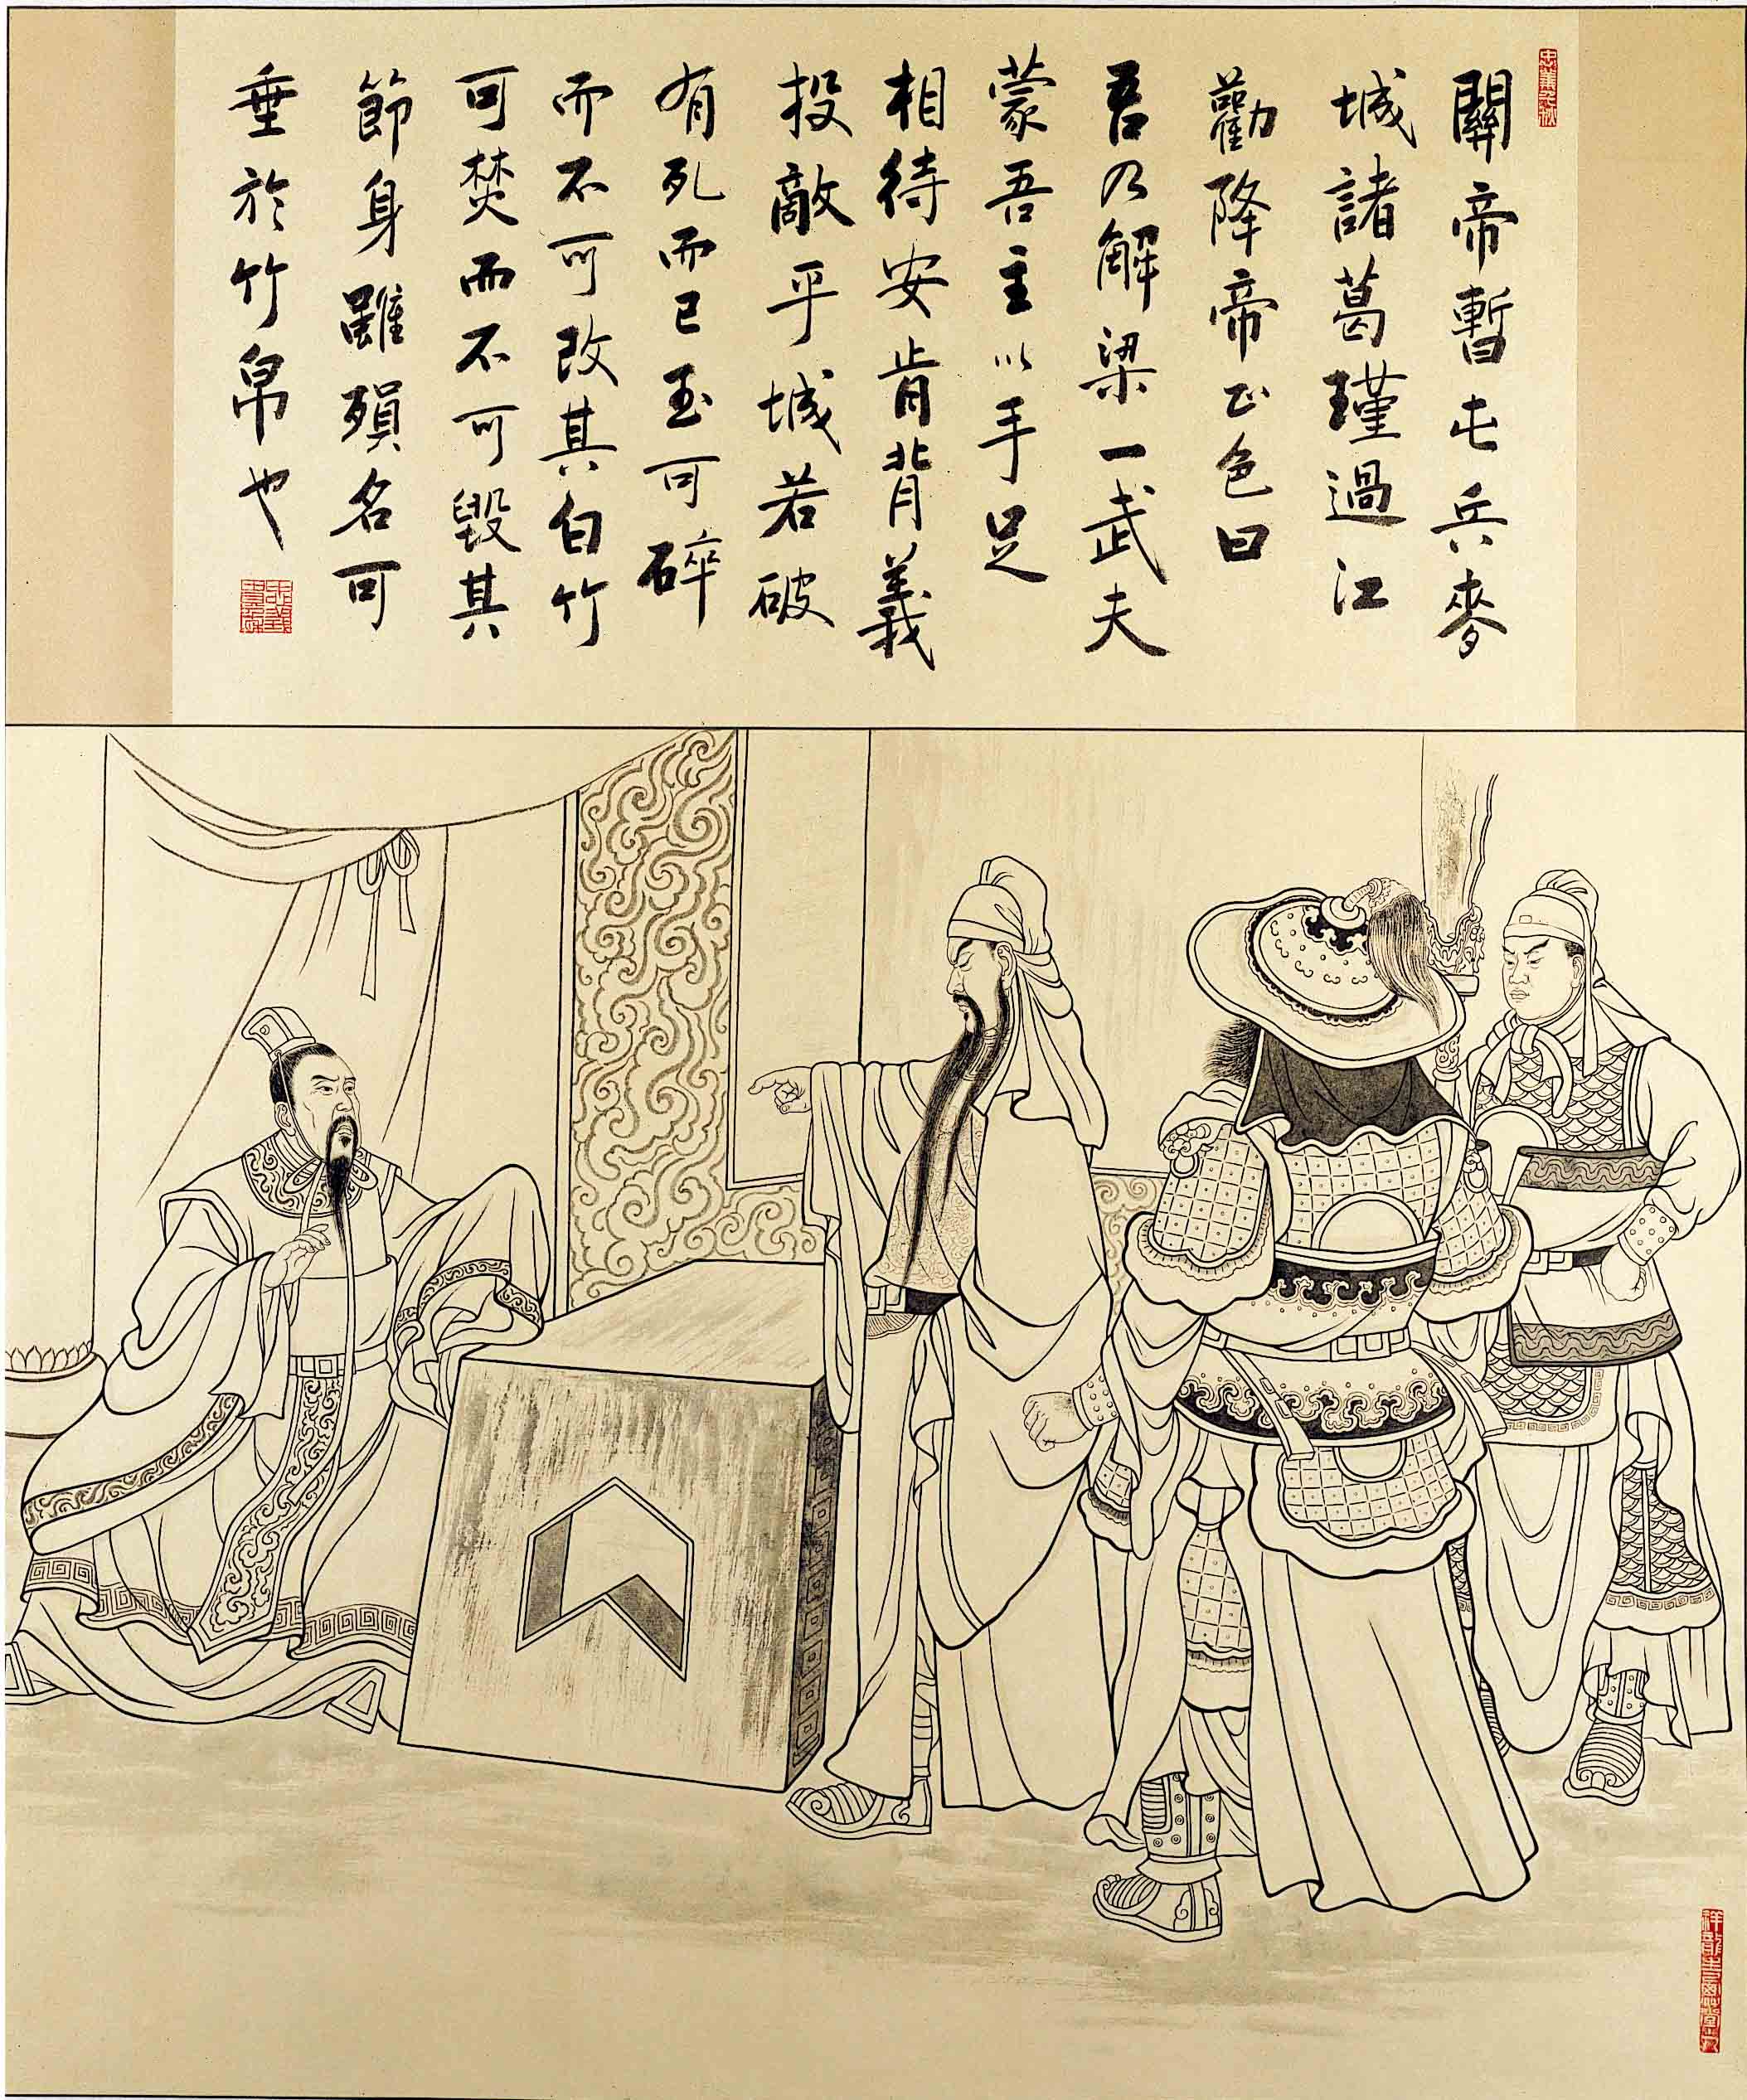 關帝暫屯兵麥
城諸葛瑾過江
勸降帝正色曰
吾乃解梁一武夫
蒙吾主以手足
相待安肯背義
投敵乎城若破
有死而已玉可碎
而不可改其白竹
可焚而不可毀其
節身雖殞名可
垂於竹帛也